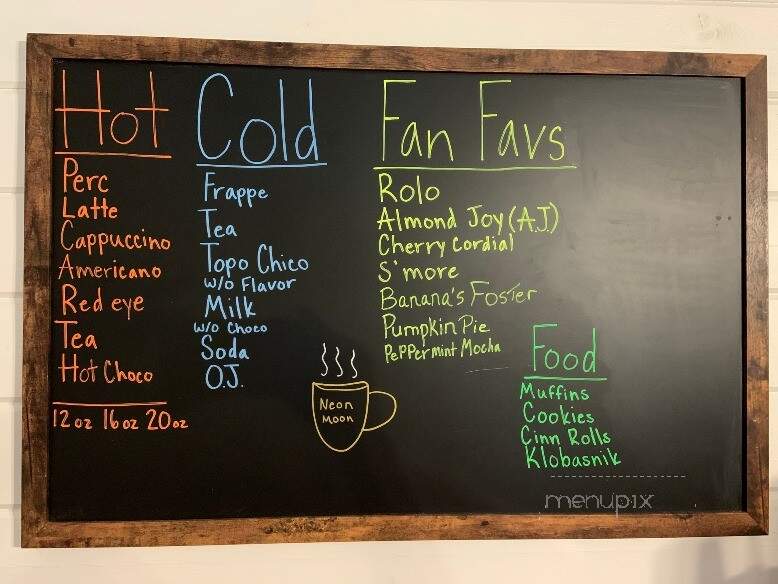 Hot
Perc
Latte
Cappuccino
Americano
Red eye
Tea
Hot Choco
12 oz 16 oz 20 oz
Cold
Frappe
Tea
Topo Chico
w/o Flavor
Milk
w/o Choco
Soda
O.J.
Fan Favs
Rolo
Almond Joy (A.J.)
Cherry Cordial
S'more
Banana's Foster
Pumpkin Pie
Peppermint Mocha
Food
Muffins
Cookies
Cinn Rolls
Klobasnik
Neon
Moon
menupix